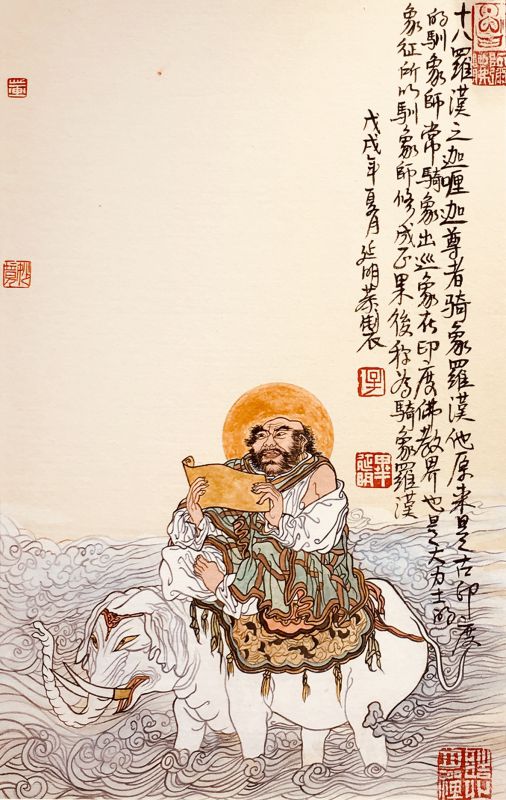 十八羅漢之迦喱迦尊者騎象羅漢他原来是古印度
的馴象師常騎象出巡象在印度佛教界也是大力士的
象征所以馴象師修成正果後称為騎象羅漢
戊戌年夏月延明恭製